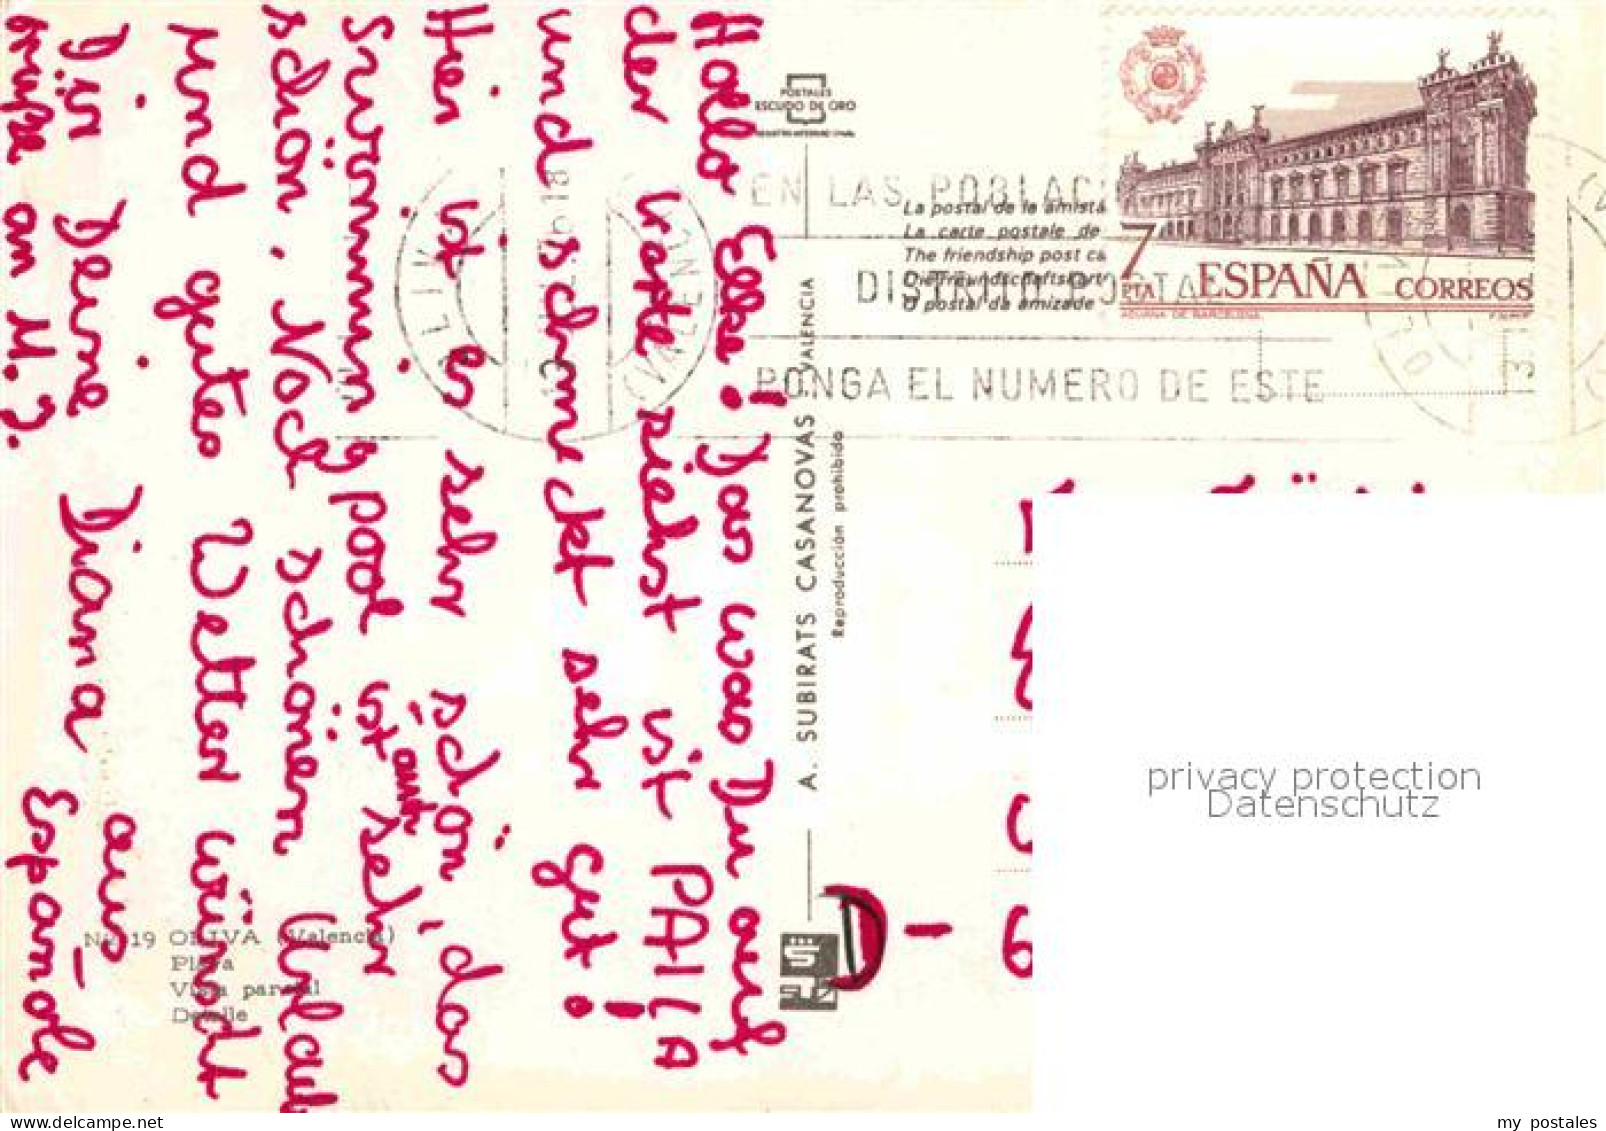 Hallo Elke! Das was Du auf
der Karte siehst ist PAILA
und schmeckt sehr gut!
Hier ist es sehr schön, das
Swimmingpool ist auch sehr
schön. Noch schönen Urlaub
und gutes Wetter wünscht
Dir Deine Diana aus
Españole
Grüße an M.J.
POSTALES
ESCUDO DE ORO
EN LAS POBLAC
DISTRITO POSTA
PONGA EL NUMERO DE ESTE
La postal de la amista
La carte postale de
The friendship post ca
Die Freundschaftskart
O postal da amizade
7
PTA
ESPAÑA
CORREOS
ADUANA DE BARCELONA
A. SUBIRATS CASANOVAS - VALENCIA
Reproducción prohibida
VALENCIA
D - 6
19 OLIVA (Valencia)
Playa
Vista parcial
Detalle
privacy protection
Datenschutz
my postales
www.delcampe.net